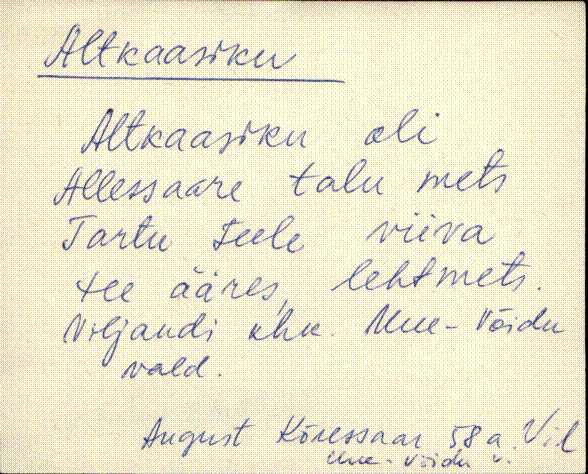 Altkaasiku
Altkaasiku oli
Allessaare talu mets
Tartu teele viiva
tee ääres, lehtmets.
Viljandi khk. Uue-Võidu
vald.
August Kõressaar 58 a. Vil
Uue-Võidu v.